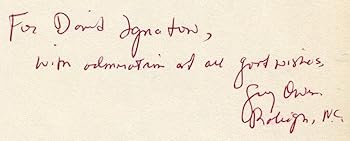 For David Ignatow,
with admiration at all good wishes,
Guy Owen
Raleigh, N.C.